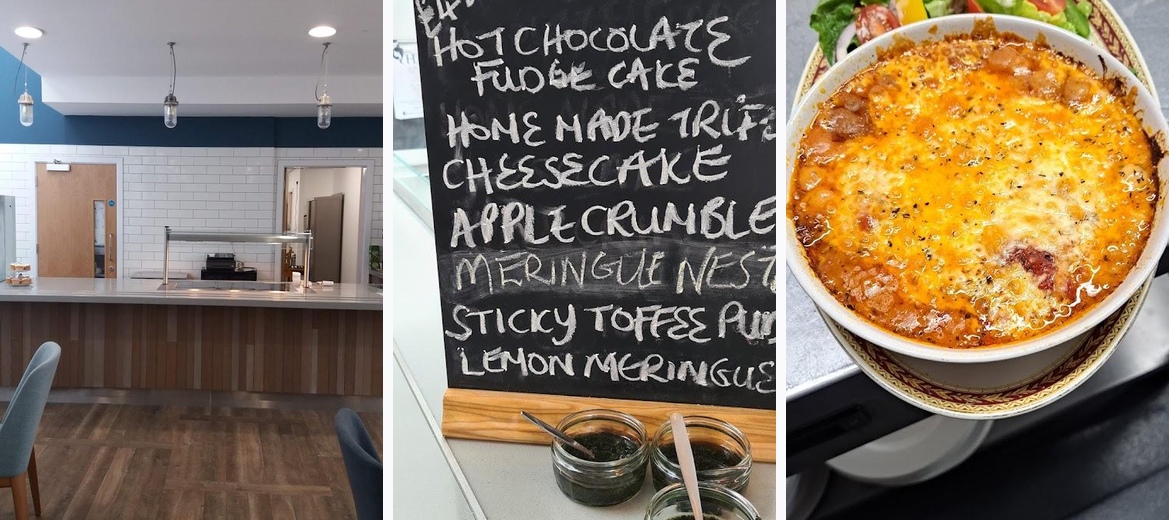 HOT CHOCOLATE
FUDGE CAKE
HOME MADE TRIF
CHEESECAKE
APPLE CRUMBLE
MERINGUE NEST
STICKY TOFFEE PU
LEMON MERINGUE